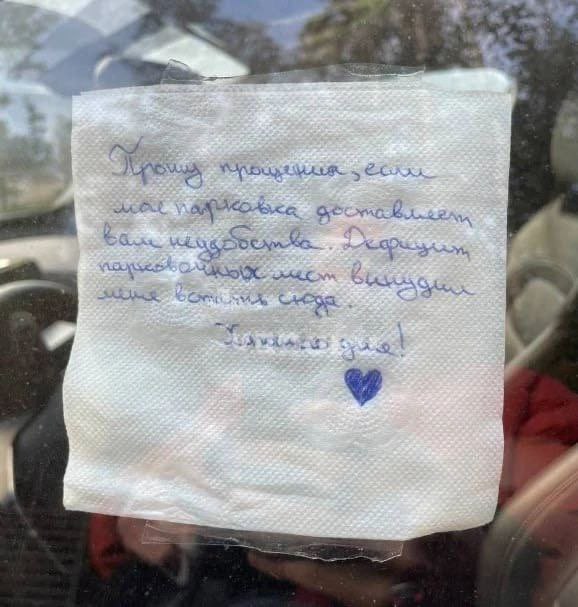 Прошу прощения, если
моя парковка доставляет
вам неудобства. Дефицит
парковочных мест вынудил
меня встать сюда.
Хорошего дня!